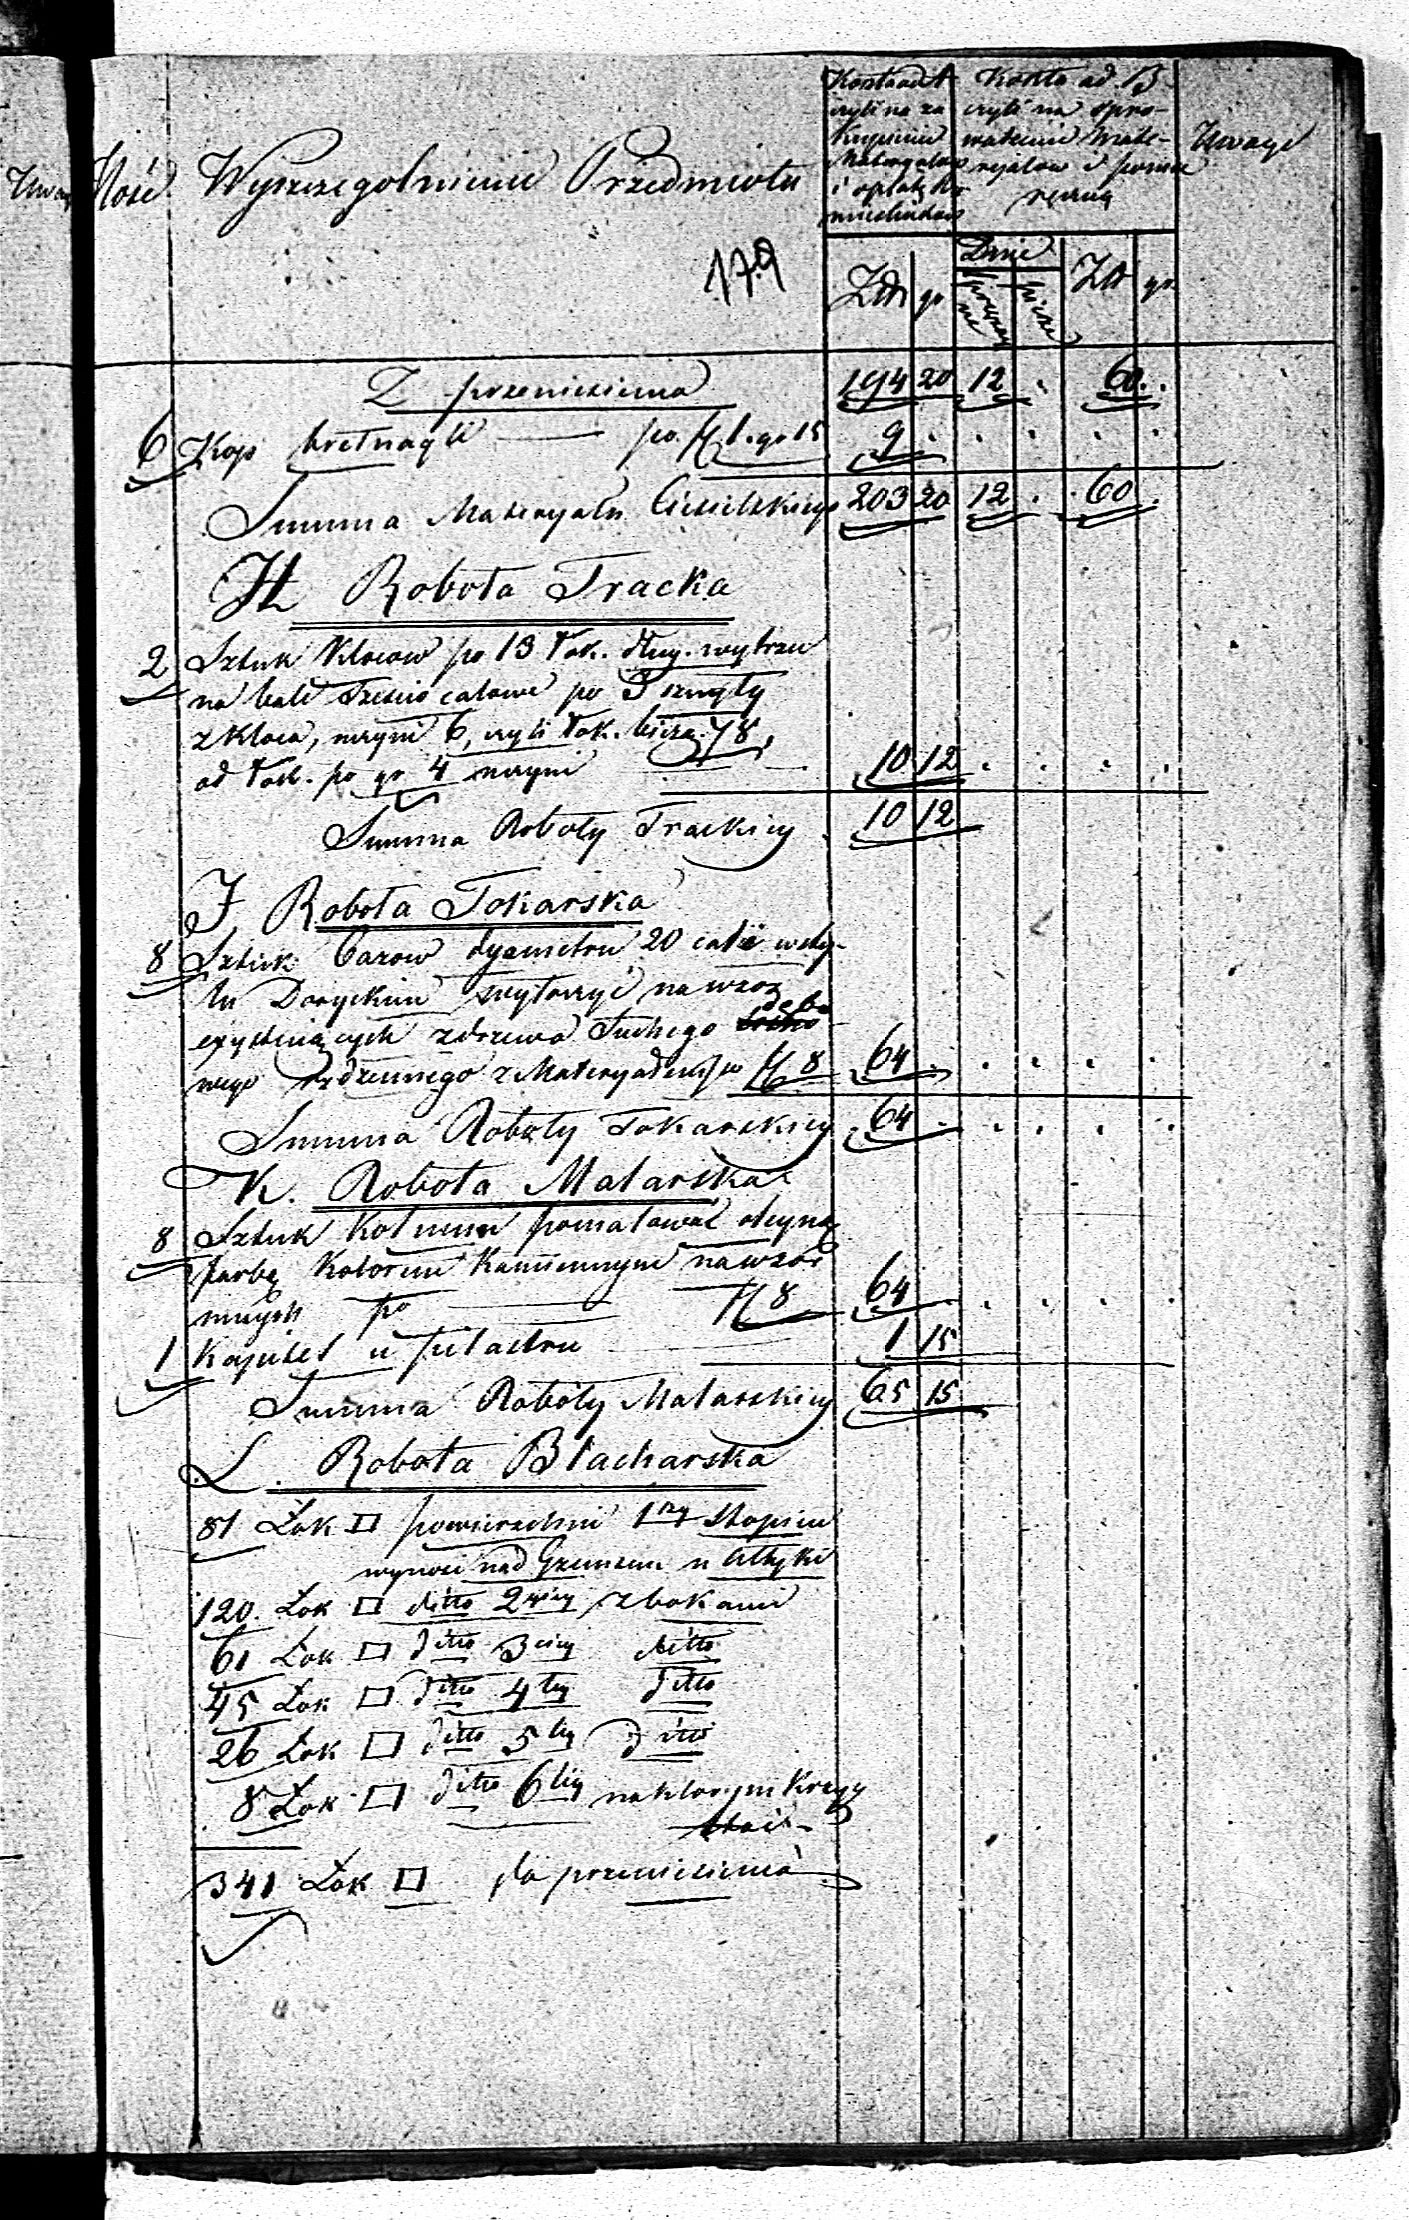 Ilość Wyszczególnienie Przedmiotu
Koszta ad A czyli na zakupienie Materyałów i opłatę
Koszta ad. B czyli na sprowadzenie Materyałów i pomoc ręczną
Uwagi
179
Złł gr Dnie Złł gr
Z przeniesienia 194 20 12 . 60 . .
6 Kop bretnagli — po fl 1. gr 15 9 . . . . .
Summa Materyału Ciesielskiego 203 20 12 . . 60 .
H Robota Tracka
2 Sztuk Kloców po 13 Łok. dług. wytrzeć
na bale sześcio calowe po 3 sznyty
z Kloca, czyni 6, czyli Łok. bieżą. 78,
od Łok. po gr 4 czyni — 10 12 . . . .
Summa Roboty Trackiey 10 12
J Robota Tokarska
8 Sztuk Bazow dyametru 20 cali w sty-
lu Doryckim wytoczyć na wzor
exystuiących z drzewa suchego dębo
wego rdzennego z Materyałem po fl 8 64 . . . . .
Summa Roboty Tokarskiey 64 . . . . .
K. Robota Malarska
8 Sztuk Kolumn pomalować oleyną
farbą Kolorem Kamiennym na wzór
innych po — fl 8 64 . . . .
1 Kapitel u pilastru — 1 15
Summa Roboty Malarskiey 65 15
L. Robota Blacharska
81 Łok □ powierzchni 1szy stopień
wynosi nad Gzemsem u Attyki
120. Łok □ ditto 2giey z bokami
61 Łok □ ditto 3ciey ditto
45 Łok □ ditto 4tey ditto
26 Łok □ ditto 5tey ditto
8 Łok □ ditto 6tey na ktorym Krzyż
stoi
341 Łok □ do przeniesienia